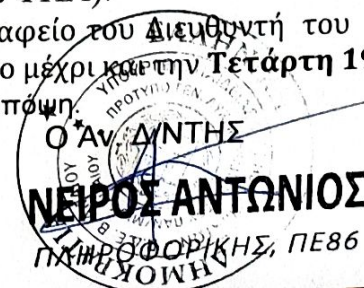 αφείο του Διευθυντή του
ο μέχρι και την Τετάρτη 19
πόψη.
Ο Αν. Δ/ΝΤΗΣ
ΝΕΙΡΟΣ ΑΝΤΩΝΙΟΣ
ΠΛΗΡΟΦΟΡΙΚΗΣ, ΠΕ86